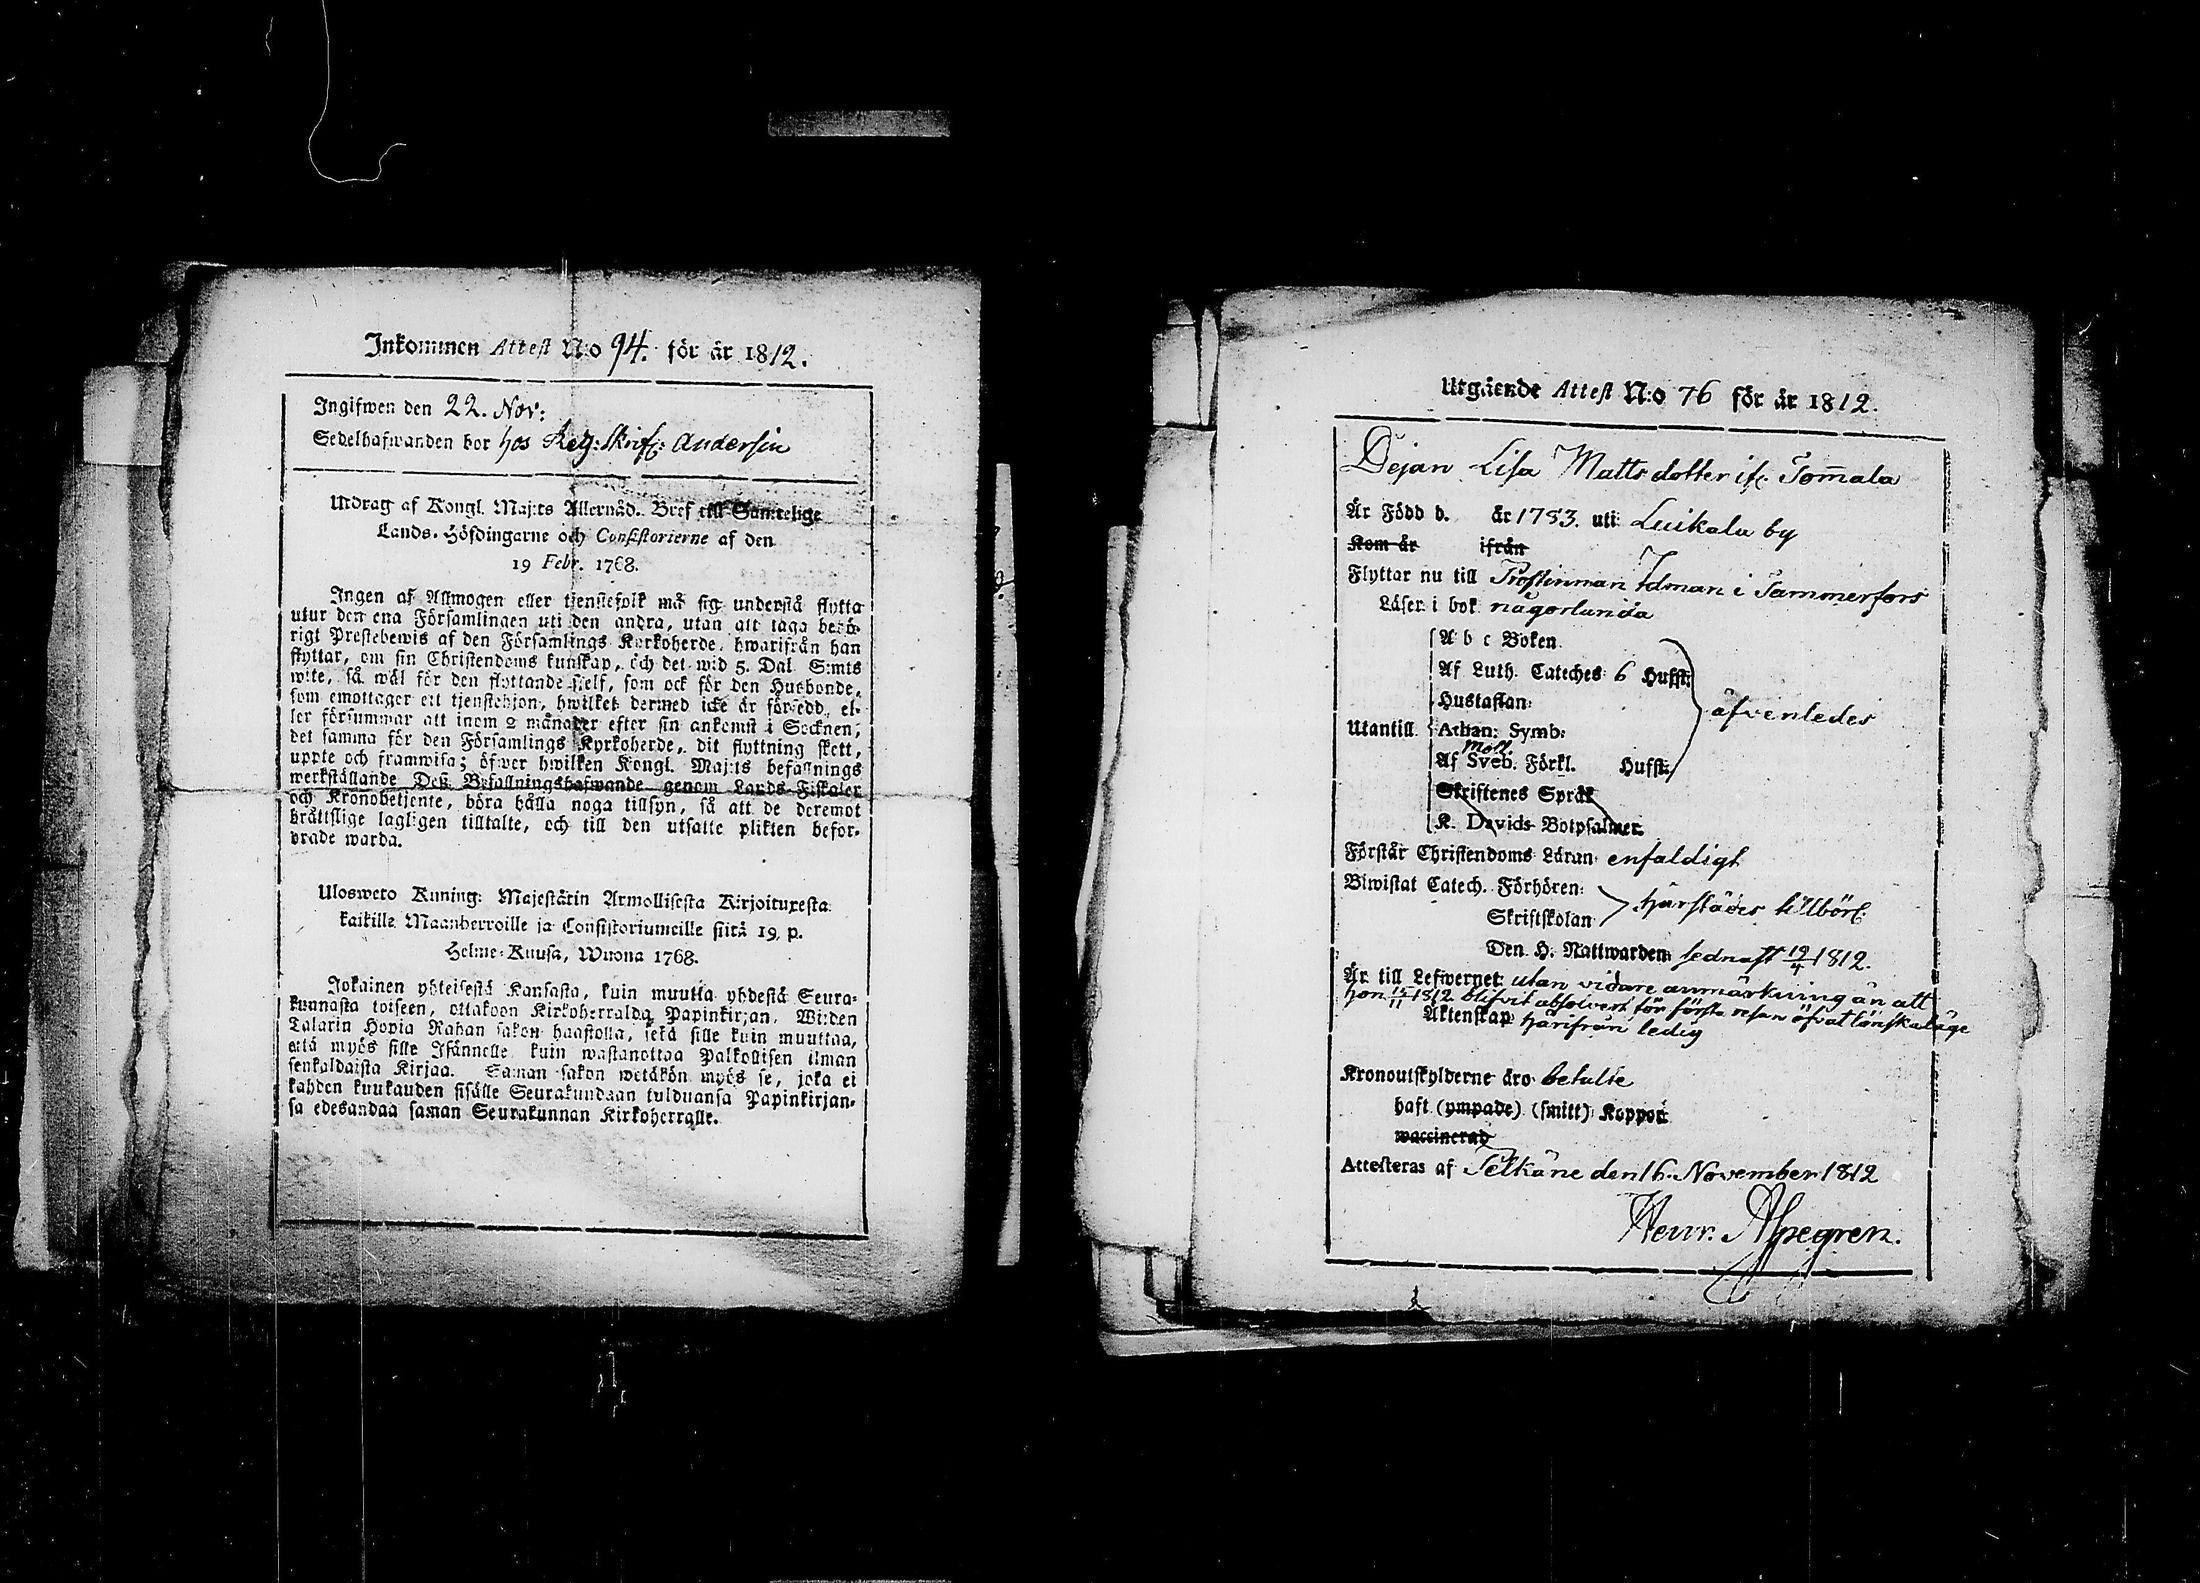 Inkommen Attest N:o 94. för år 1812.
Ingifwen den 22. Nov:
Sedelhafwanden bor hos Reg: Skrifv: Andersin
Utdrag af Kongl. Maj:ts Allernåd. Bref till Samtelige
Lands-Höfdingarne och Consistorierne af den
19 Febr. 1768.
Ingen af Allmogen eller tjenstefolk må sig understå flytta
utur den ena Församlingen uti den andra, utan att taga behö-
rigt Prestebewis af den Församlings Kyrkoherde, hwarifrån han
flyttar, om sin Christendoms kunskap, och det wid 5. Dal. S:mts
wite, så wäl för den flyttande sjelf, som ock för den Husbonde,
som emottager ett tjenstehjon, hwilket dermed icke är försedd, el-
ler försummar att inom 2 månader efter sin ankomst i Socknen,
det samma för den Församlings Kyrkoherde, dit flyttning skett,
uppte och framwisa; öfwer hwilken Kongl. Maj:ts befallnings
werkställande Deß Befallningshafwande genom Lands-Fiskaler
och Kronobetjente, böra hålla noga tillsyn, så att de deremot
brättslige lagligen tilltalte, och till den utsatte plikten befor-
drade warda.
Ulosweto Kuning: Majestätin Armollisesta Kirjoituxesta
kaikille Maanherroille ja Consistoriumeille siitä 19. p.
Helme-Kuusa, Wuona 1768.
Jokainen yhteisestä Kansasta, kuin muutta yhdestä Seura-
kunnasta toiseen, ottakoon Kirkoherralda Papinkirjan, Wijden
Talarin Hopia Rahan sakon haastolla, sekä sille kuin muuttaa,
että myös sille Isännelle kuin wastanottaa Palkollisen ilman
senkaldaista Kirjaa. Saman sakon wetäkön myös se, joka ei
kahden kuukauden sisälle Seurakundaan tulduansa Papinkirjan-
sa edesandaa saman Seurakunnan Kirkoherralle.
Utgående Attest N:o 76 för år 1812.
Dejan Lisa Matts dotter ifr. Tom̄ala
Är Född d. år 1783. uti Luikala by
Kom år ifrån
Flyttar nu till Idman i Tammerfors
Läser i bok någorlunda
A b c Boken
Af Luth. Cateches 6 Hufst:
Hustaflan
äfvenledes
Utantill Athan: Symb:
Moll.
Af Sveb. Förkl. Hufst:
Skriftenes Språk
K. Davids Botpsalmer
Förstår Christendoms Läran enfaldigt
Biwistat Catech. Förhören:
härstädes tillbörl:
Skriftskolan
Den H. Nattwarden sednast 19/4 1812.
Är till Lefwernet utan vidare anmärkning än att
hon 15/11 1812 blifvit absolverat för första resan öfvat lönskaläge
Äktenskap härifrån ledig
Kronoutskylderne äro betalte
haft (ympade) (smitt) Koppor
waccinerad
Attesteras af Pelkäne den 16. November 1812
Henr. Alpegren.